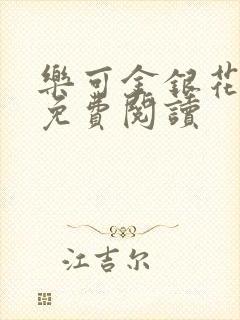 樂可金銀花
免費閱讀
江吉尔